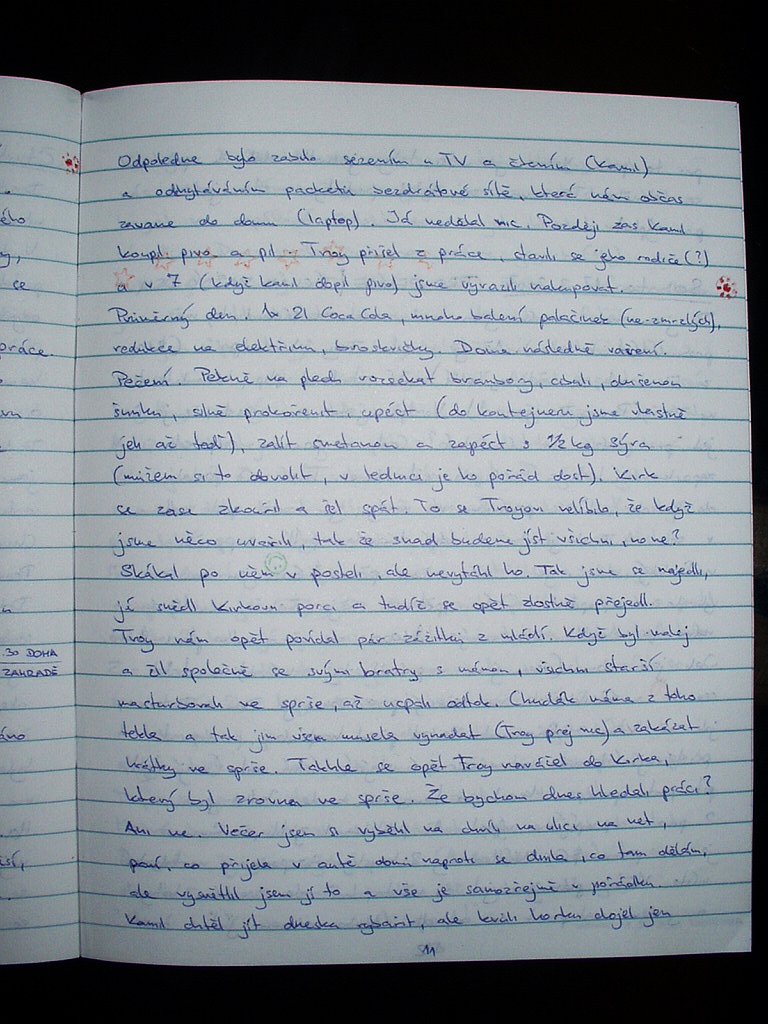 Odpoledne bylo zabito sezením u TV a čtením (Kamil)
a odchytáváním packetů bezdrátové sítě, která nám občas
zavane do domu (laptop). Já nedělal nic. Později zas Kamil
koupil pivo a pil. Troy přijel z práce, stavili se jeho rodiče(?)
a v 7 (když Kamil dopil pivo) jsme vyrazili nakupovat.
Průměrný den. 1x 2l Coca Cola, mnoho balení palačinek (ne-zmrzlých),
redukce na elektřinu, broskvičky. Doma následné vaření.
Pečení. Pěkně na plech rozsekat brambory, cibuli, dušenou
šunku, silně prokořenit, upéct (do kontejneru jsme vlastně
jeli až teď), zalít smetanou a zapéct s 1/2 kg sýra
(můžem si to dovolit, v lednici je ho pořád dost). Kirk
se zase zkouřil a šel spát. To se Troyovi nelíbilo, že když
jsme něco uvařili, tak že snad budeme jíst všichni, no ne?
Skákal po něm v posteli, ale nevytáhl ho. Tak jsme se najedli,
já snědl Kirkovu porci a tudíž se opět zlostně přejedl.
Troy nám opět povídal pár zážitků z mládí. Když byl malej
a žil společně se svými bratry s mámou, všichni starší
masturbovali ve sprše, až ucpali odtok. Chudák máma z toho
tekla a tak jim všem musela vynadat (Troy prej nic) a zakázat
hrátky ve sprše. Takhle se opět Troy navážel do Kirka,
který byl zrovna ve sprše. Že bychom dnes hledali práci?
Ani ne. Večer jsem si vyběhl na chvíli na ulici na net,
paní, co přijela v autě domů naproti se divila, co tam dělám,
ale vysvětlil jsem jí to a vše je samozřejmě v pořádku.
Kamil chtěl jít dneska rybařit, ale kvůli horku dojel jen
11
ého
y,
se
práce.
.30 DOHA
ZAHRADĚ